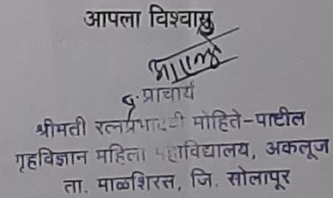 आपला विश्वासु
प्राचार्य
श्रीमती रत्नप्रभादेवी मोहिते-पाटील
गृहविज्ञान महिला महाविद्यालय, अकलूज
ता. माळशिरस, जि. सोलापूर